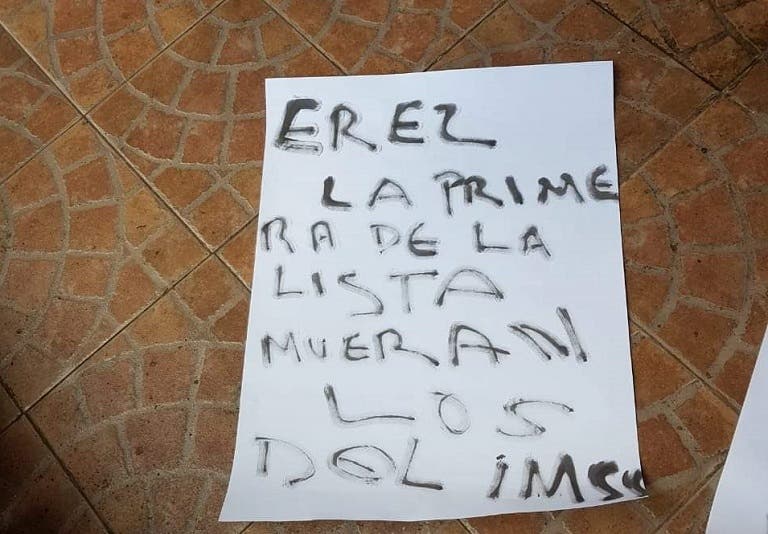 EREZ
LA PRIME
RA DE LA
LISTA
MUERAN
LOS
DEL iMSS